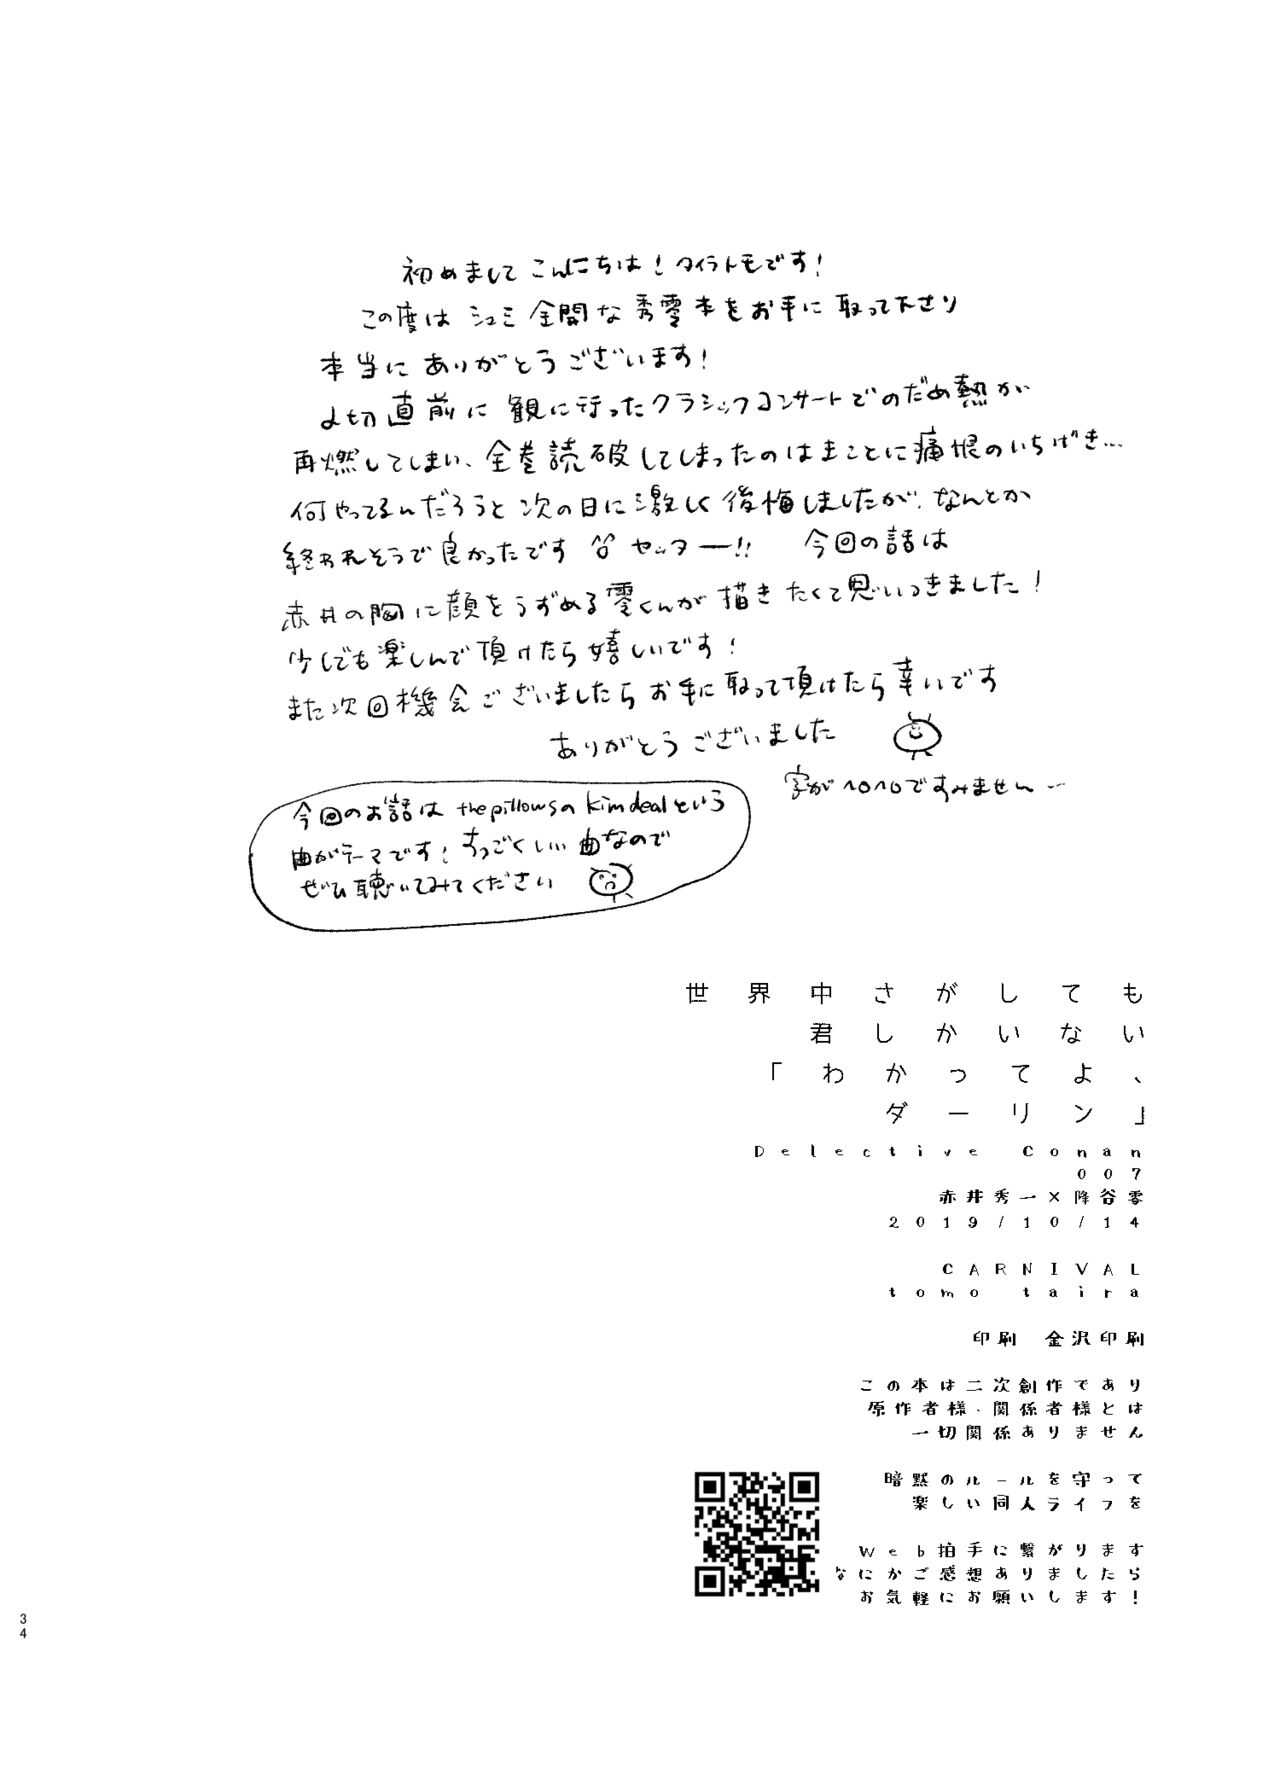 初めまして こんにちは！タイラトモです！
この度は シュミ全開な秀零本をお手に取って下さり
本当に ありがとうございます！
〆切直前に 観に行ったクラシックコンサートでのだめ熱が
再燃してしまい、全巻読破してしまったのはまことに痛恨のいちげき…
何やってるんだろうと 次の日に激しく後悔しましたが、なんとか
終われそうで良かったです ヤッター!! 今回の話は
赤井の胸に顔をうずめる零くんが描きたくて思いつきました！
少しでも楽しんで頂けたら嬉しいです！
また次回機会ございましたらお手に取って頂けたら幸いです
ありがとうございました
字がヘロヘロですみません…
今回のお話は the pillowsの kim dealという
曲がテーマです！すっごくいい曲なので
ぜひ聴いてみてください
世界中さがしても
君しかいない
「わかってよ、
ダーリン」
Detective Conan
007
赤井秀一×降谷零
2019/10/14
CARNIVAL
tomo taira
印刷 金沢印刷
この本は二次創作であり
原作者様・関係者様とは
一切関係ありません
暗黙のルールを守って
楽しい同人ライフを
Web拍手に繋がります
なにかご感想ありましたら
お気軽にお願いします！
34